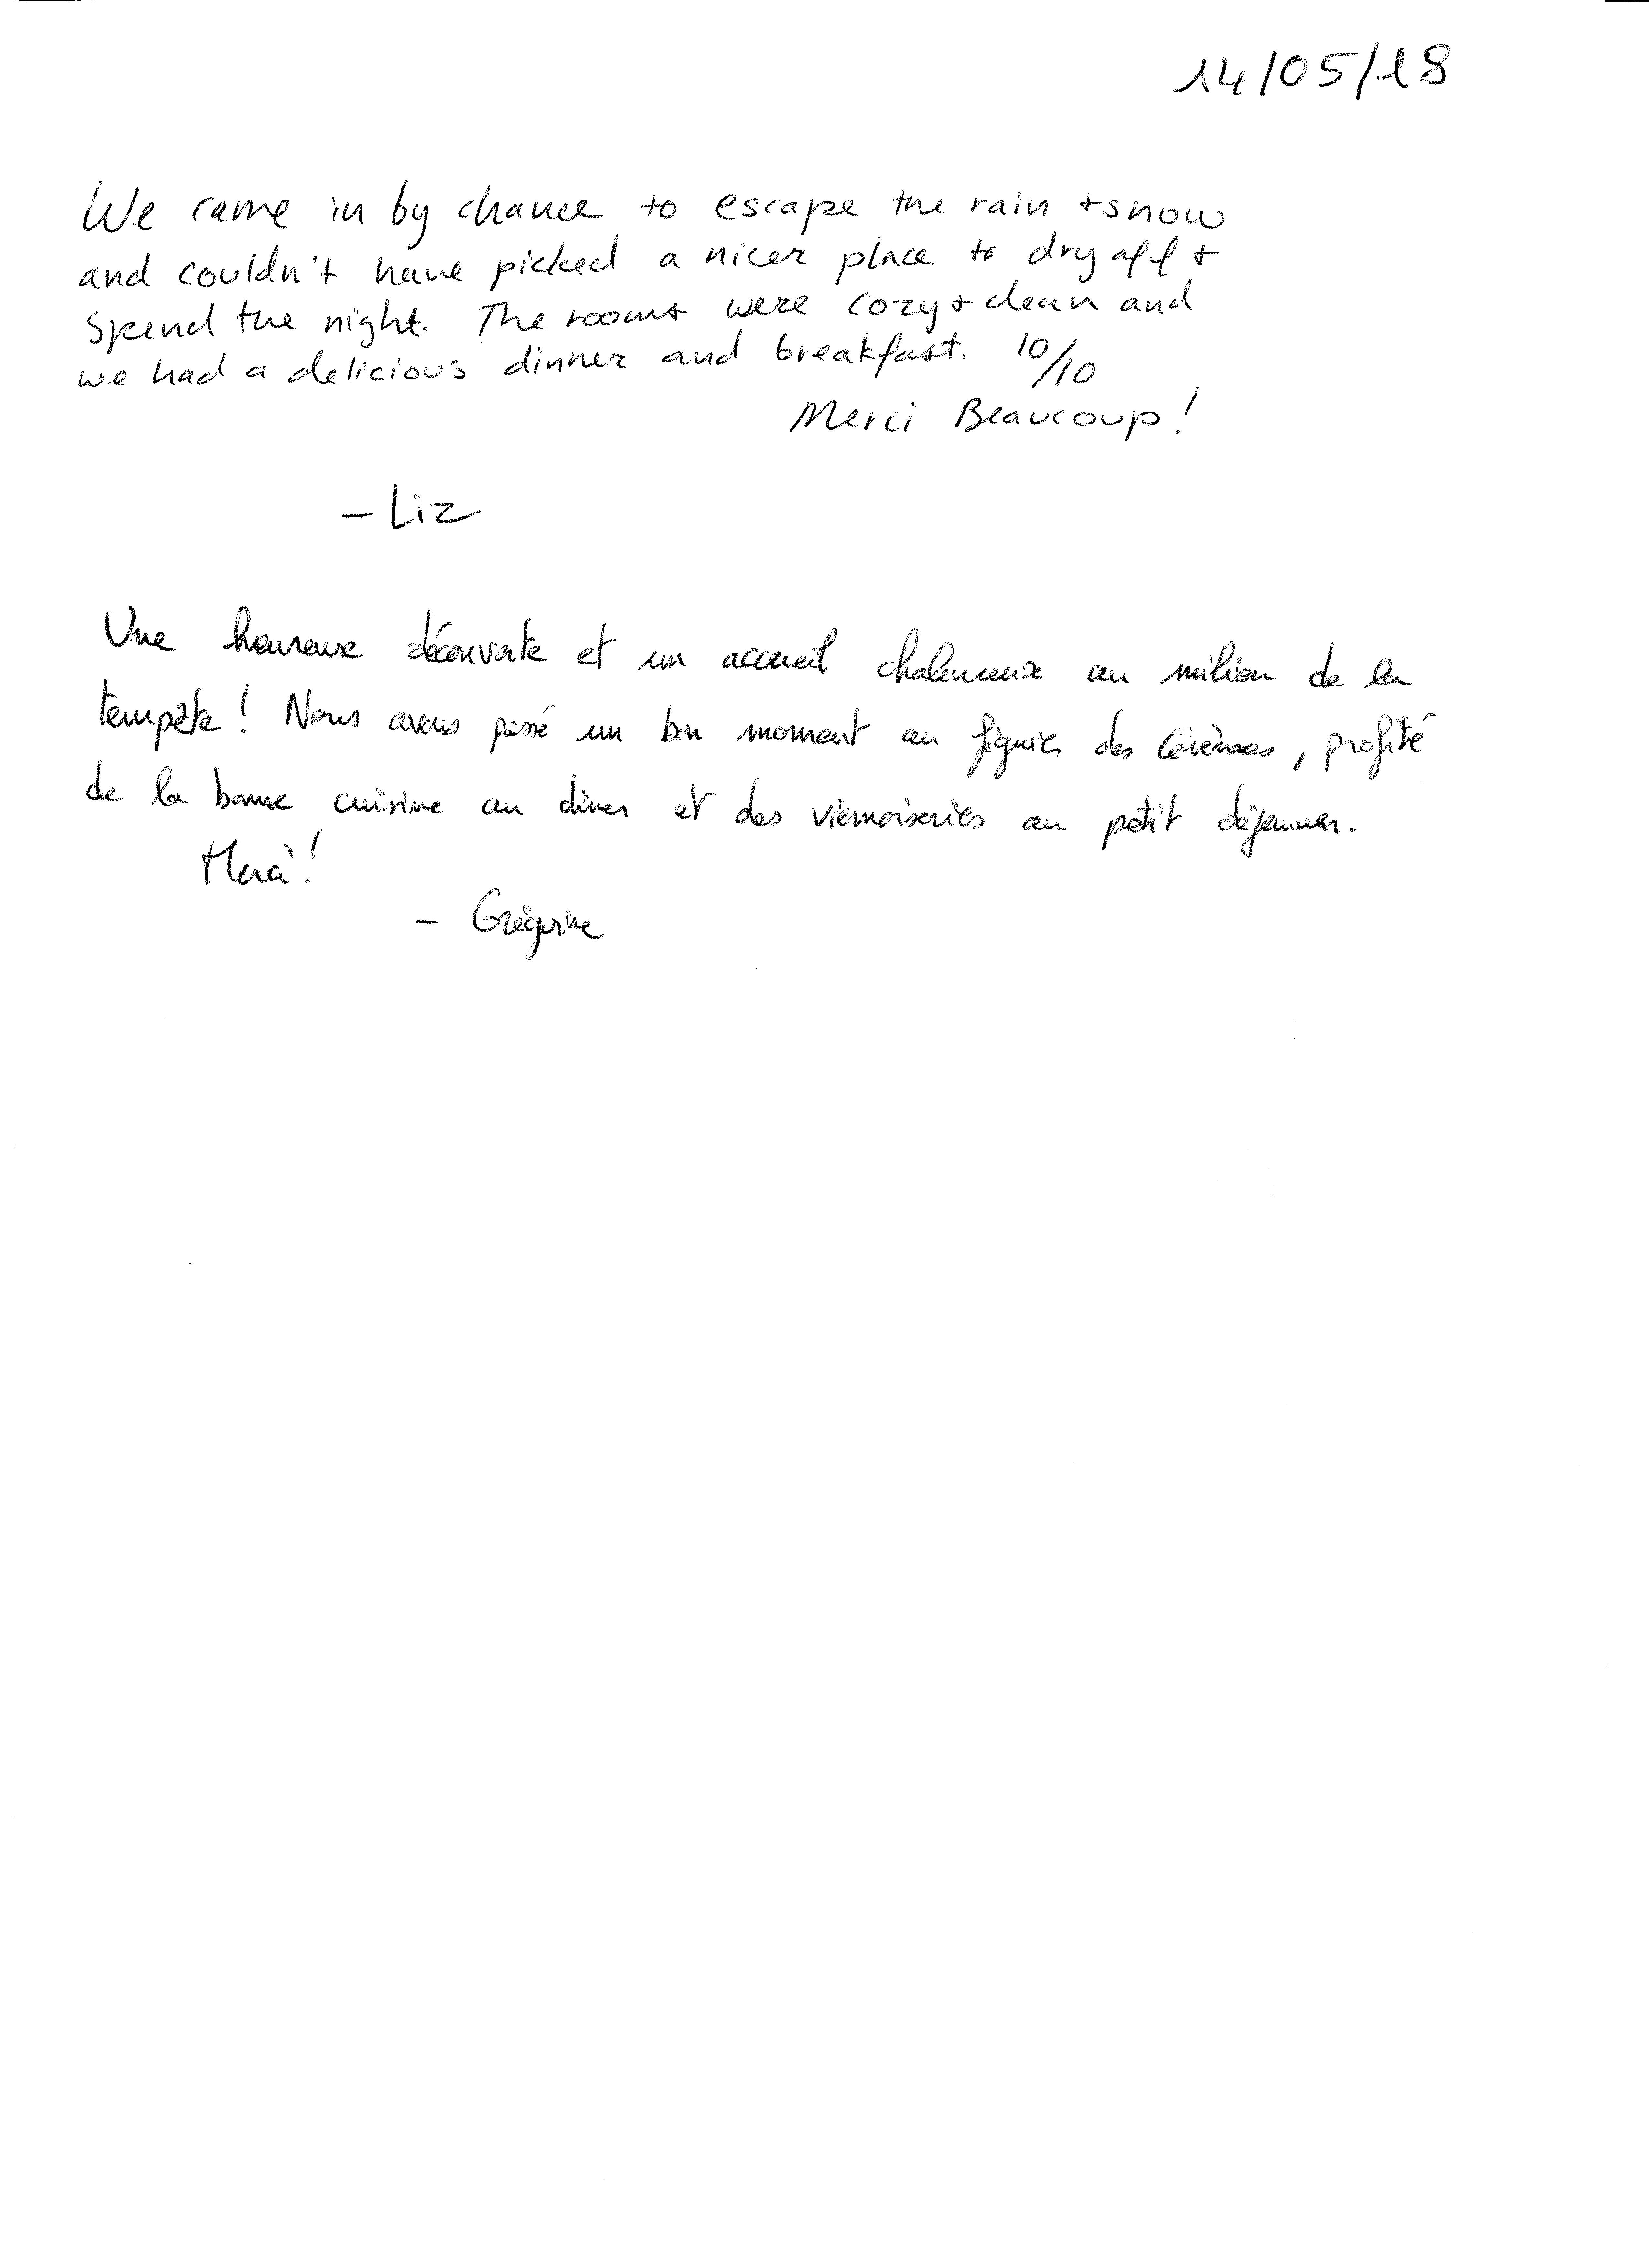 14/05/18
We came in by chance to escape the rain + snow
and couldn't have picked a nicer place to dry off +
spend the night. The rooms were cozy + clean and
we had a delicious dinner and breakfast. 10/10
Merci Beaucoup!
- Liz
Une heureuse découverte et un accueil chaleureux au milieu de la
tempête! Nous avons passé un bon moment au des Cévènnes, profité
de la bonne cuisine au diner et des viennoiseries au petit déjeuner.
Merci!
- Grégoire